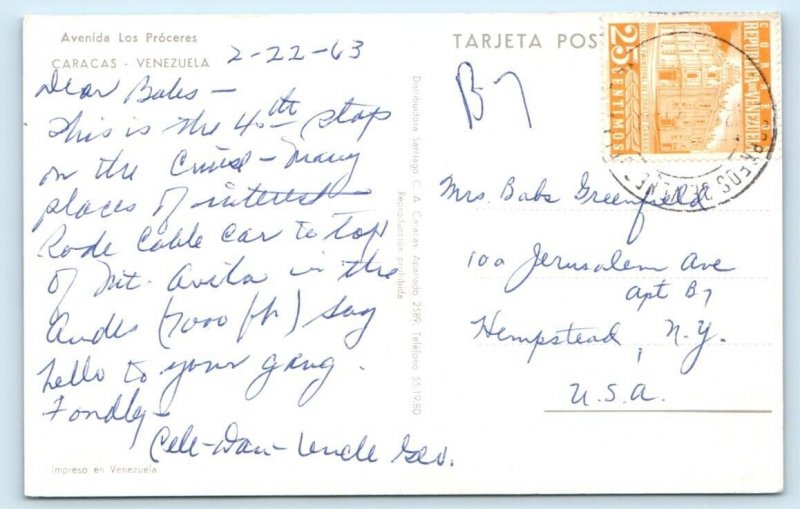 Avenida Los Próceres
CARACAS - VENEZUELA
2-22-63
Dear Babs -
This is the 4th stop
on the Cruise - Many
places of interest -
Rode Cable Car to top
of Mt. Avila in the
Andes (7000 ft) Say
hello to your gang.
Fondly -
Cele - Dan - Uncle Geo.
Impreso en Venezuela
Distribuidora Santiago C. A. Caracas Apartado 2589. Teléfono 55.19.80
Reproducción prohibida
TARJETA POST
B7
CORREOS
REPUBLICA DE VENEZUELA
25
CENTIMOS
CORREOS
Mrs. Babs Greenfield
100 Jerusalem Ave
Apt B7
Hempstead, N.Y.
U.S.A.